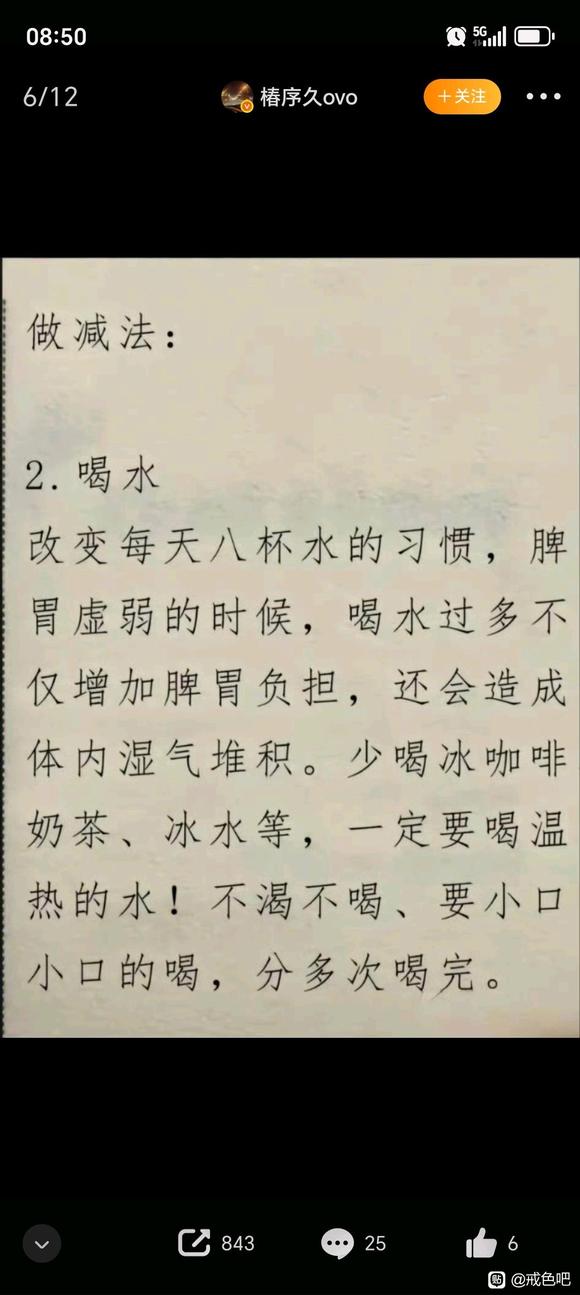 08:50
5G
6/12
椿序久ovo
+关注
做减法：
2.喝水
改变每天八杯水的习惯，脾
胃虚弱的时候，喝水过多不
仅增加脾胃负担，还会造成
体内湿气堆积。少喝冰咖啡
奶茶、冰水等，一定要喝温
热的水！不渴不喝、要小口
小口的喝，分多次喝完。
843
25
6
贴 @戒色吧